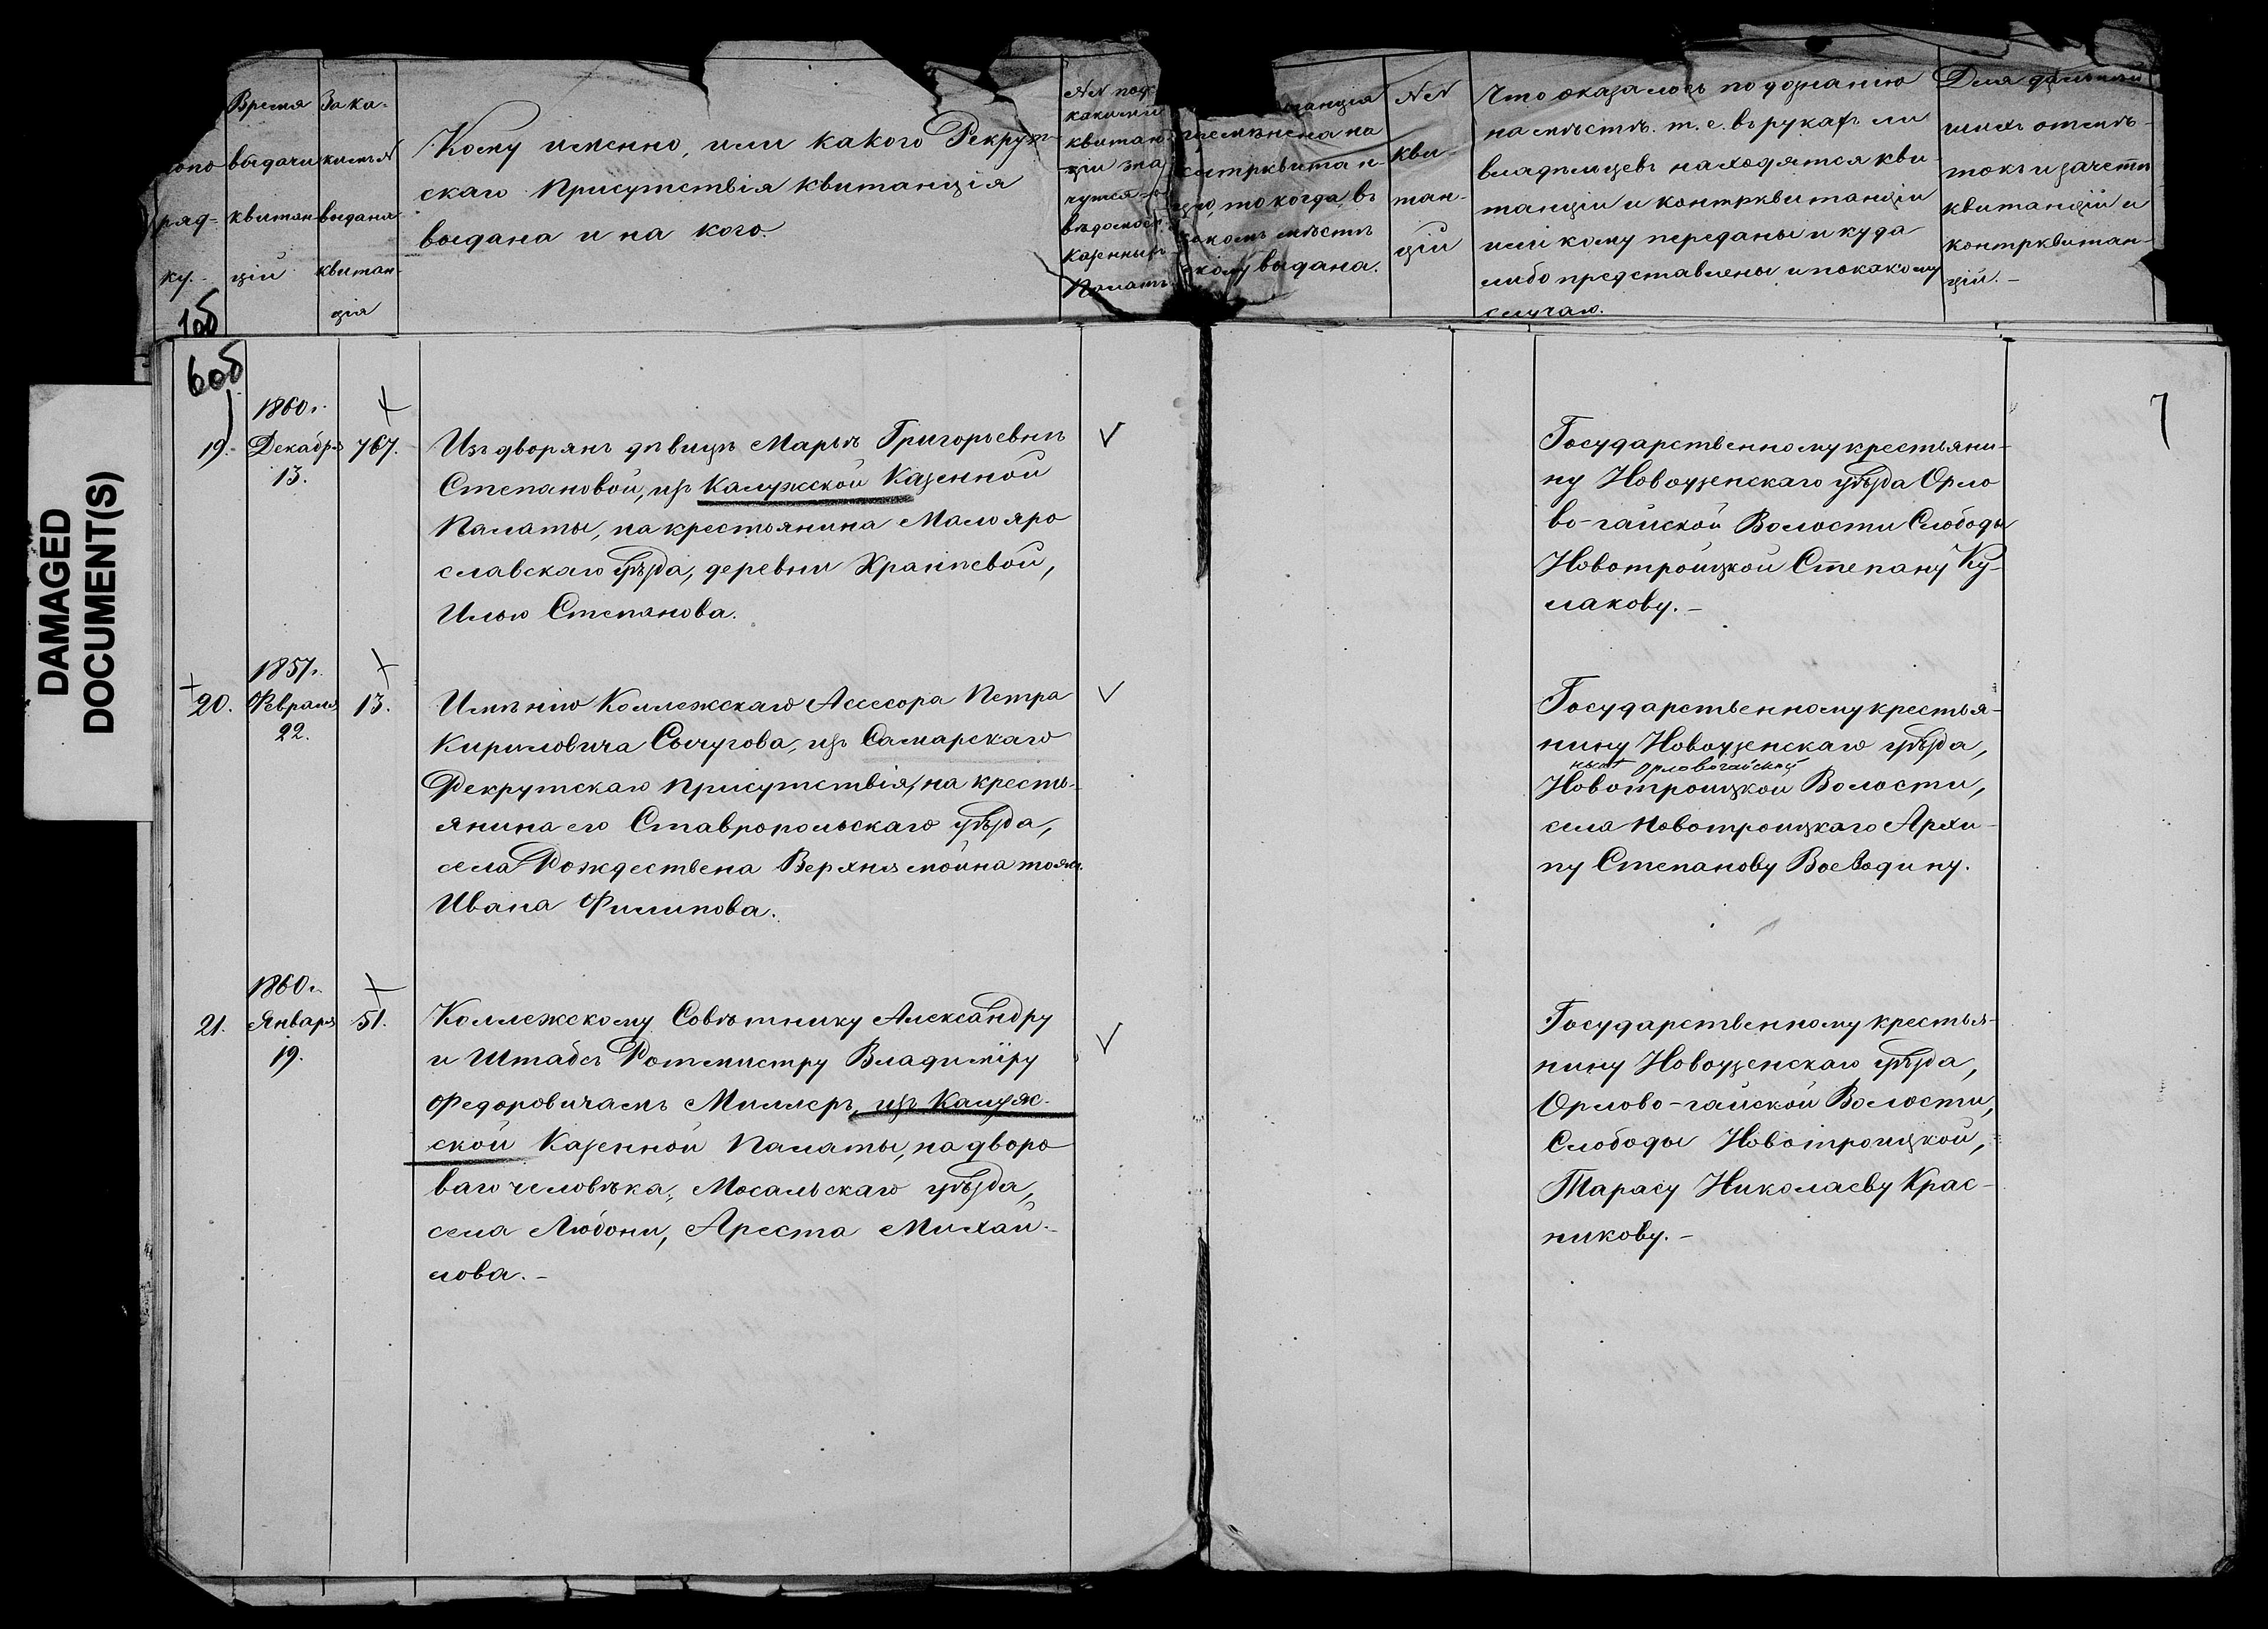 DAMAGED
DOCUMENT(S)
Время
выдачи
квитан
цій
ряд-
ку.
За ка-
кимъ N
выдана
квитан-
ція
Кому именно, или какого Рекрут-
скаго Присутствія квитанція
выдана и на кого.
NN подъ
какими
квитан-
ціи зна
чутся
Казенныхъ
Палатъ
на
контрквитан-
цію, то когда, въ
какомъ мѣстѣ
выдана.
NN
кви-
тан-
цій
Что оказалось по дознанію
на мѣстѣ. т. е. въ рукахъ ли
владѣльцевъ находятся кви-
танціи и контрквитанціи
или кому переданы и куда
либо представлены и по какому
случаю.
Для дальнѣй
шихъ отмѣ-
токъ и зачетѣ
квитанцій и
контрквитан-
цій.-
1об
6об
7
19.
1860г.
Декабря
13.
767.
Изъ дворянъ дѣвицѣ Марьѣ Григорьевнѣ
Степановой, изъ Калужской Казенной
Палаты, на крестьянина Малояро
славскаго уѣзда, деревни Храпѣевой,
Илью Степанова.
Государственному крестьяни-
ну Новоузенскаго уѣзда Орло
во-гайской Волости Слободы
Новотроицкой Степану Ку-
лакову.-
20.
1857г.
Февраля
22.
13.
Имѣнію Коллежскаго Ассесора Петра
Кириловича Сычугова, изъ Самарскаго
Рекрутскаго Присутствія, на кресть-
янина его Ставропольскаго уѣзда,
села Рождествена
Ивана Филипова.
Государственному крестья-
нину Новоузенскаго уѣзда,
нынѣ Орловогайской
Новотроицкой Волости,
села Новотроицкаго Архи-
пу Степанову Воеводину.
21.
1860г.
Января
19.
51.
Коллежскому Совѣтнику Александру
и Штабсъ Ротмистру Владиміру
Федоровичамъ Миллеръ, изъ Калуж-
ской Казенной Палаты, на дворо
ваго человѣка, Мосальскаго уѣзда,
села Любони, Ареста Михай-
лова.-
Государственному крестья-
нину Новоузенскаго уѣзда,
Орлово-гайской Волости,
Слободы Новотроицкой,
Тарасу Николаеву Крас-
никову.-